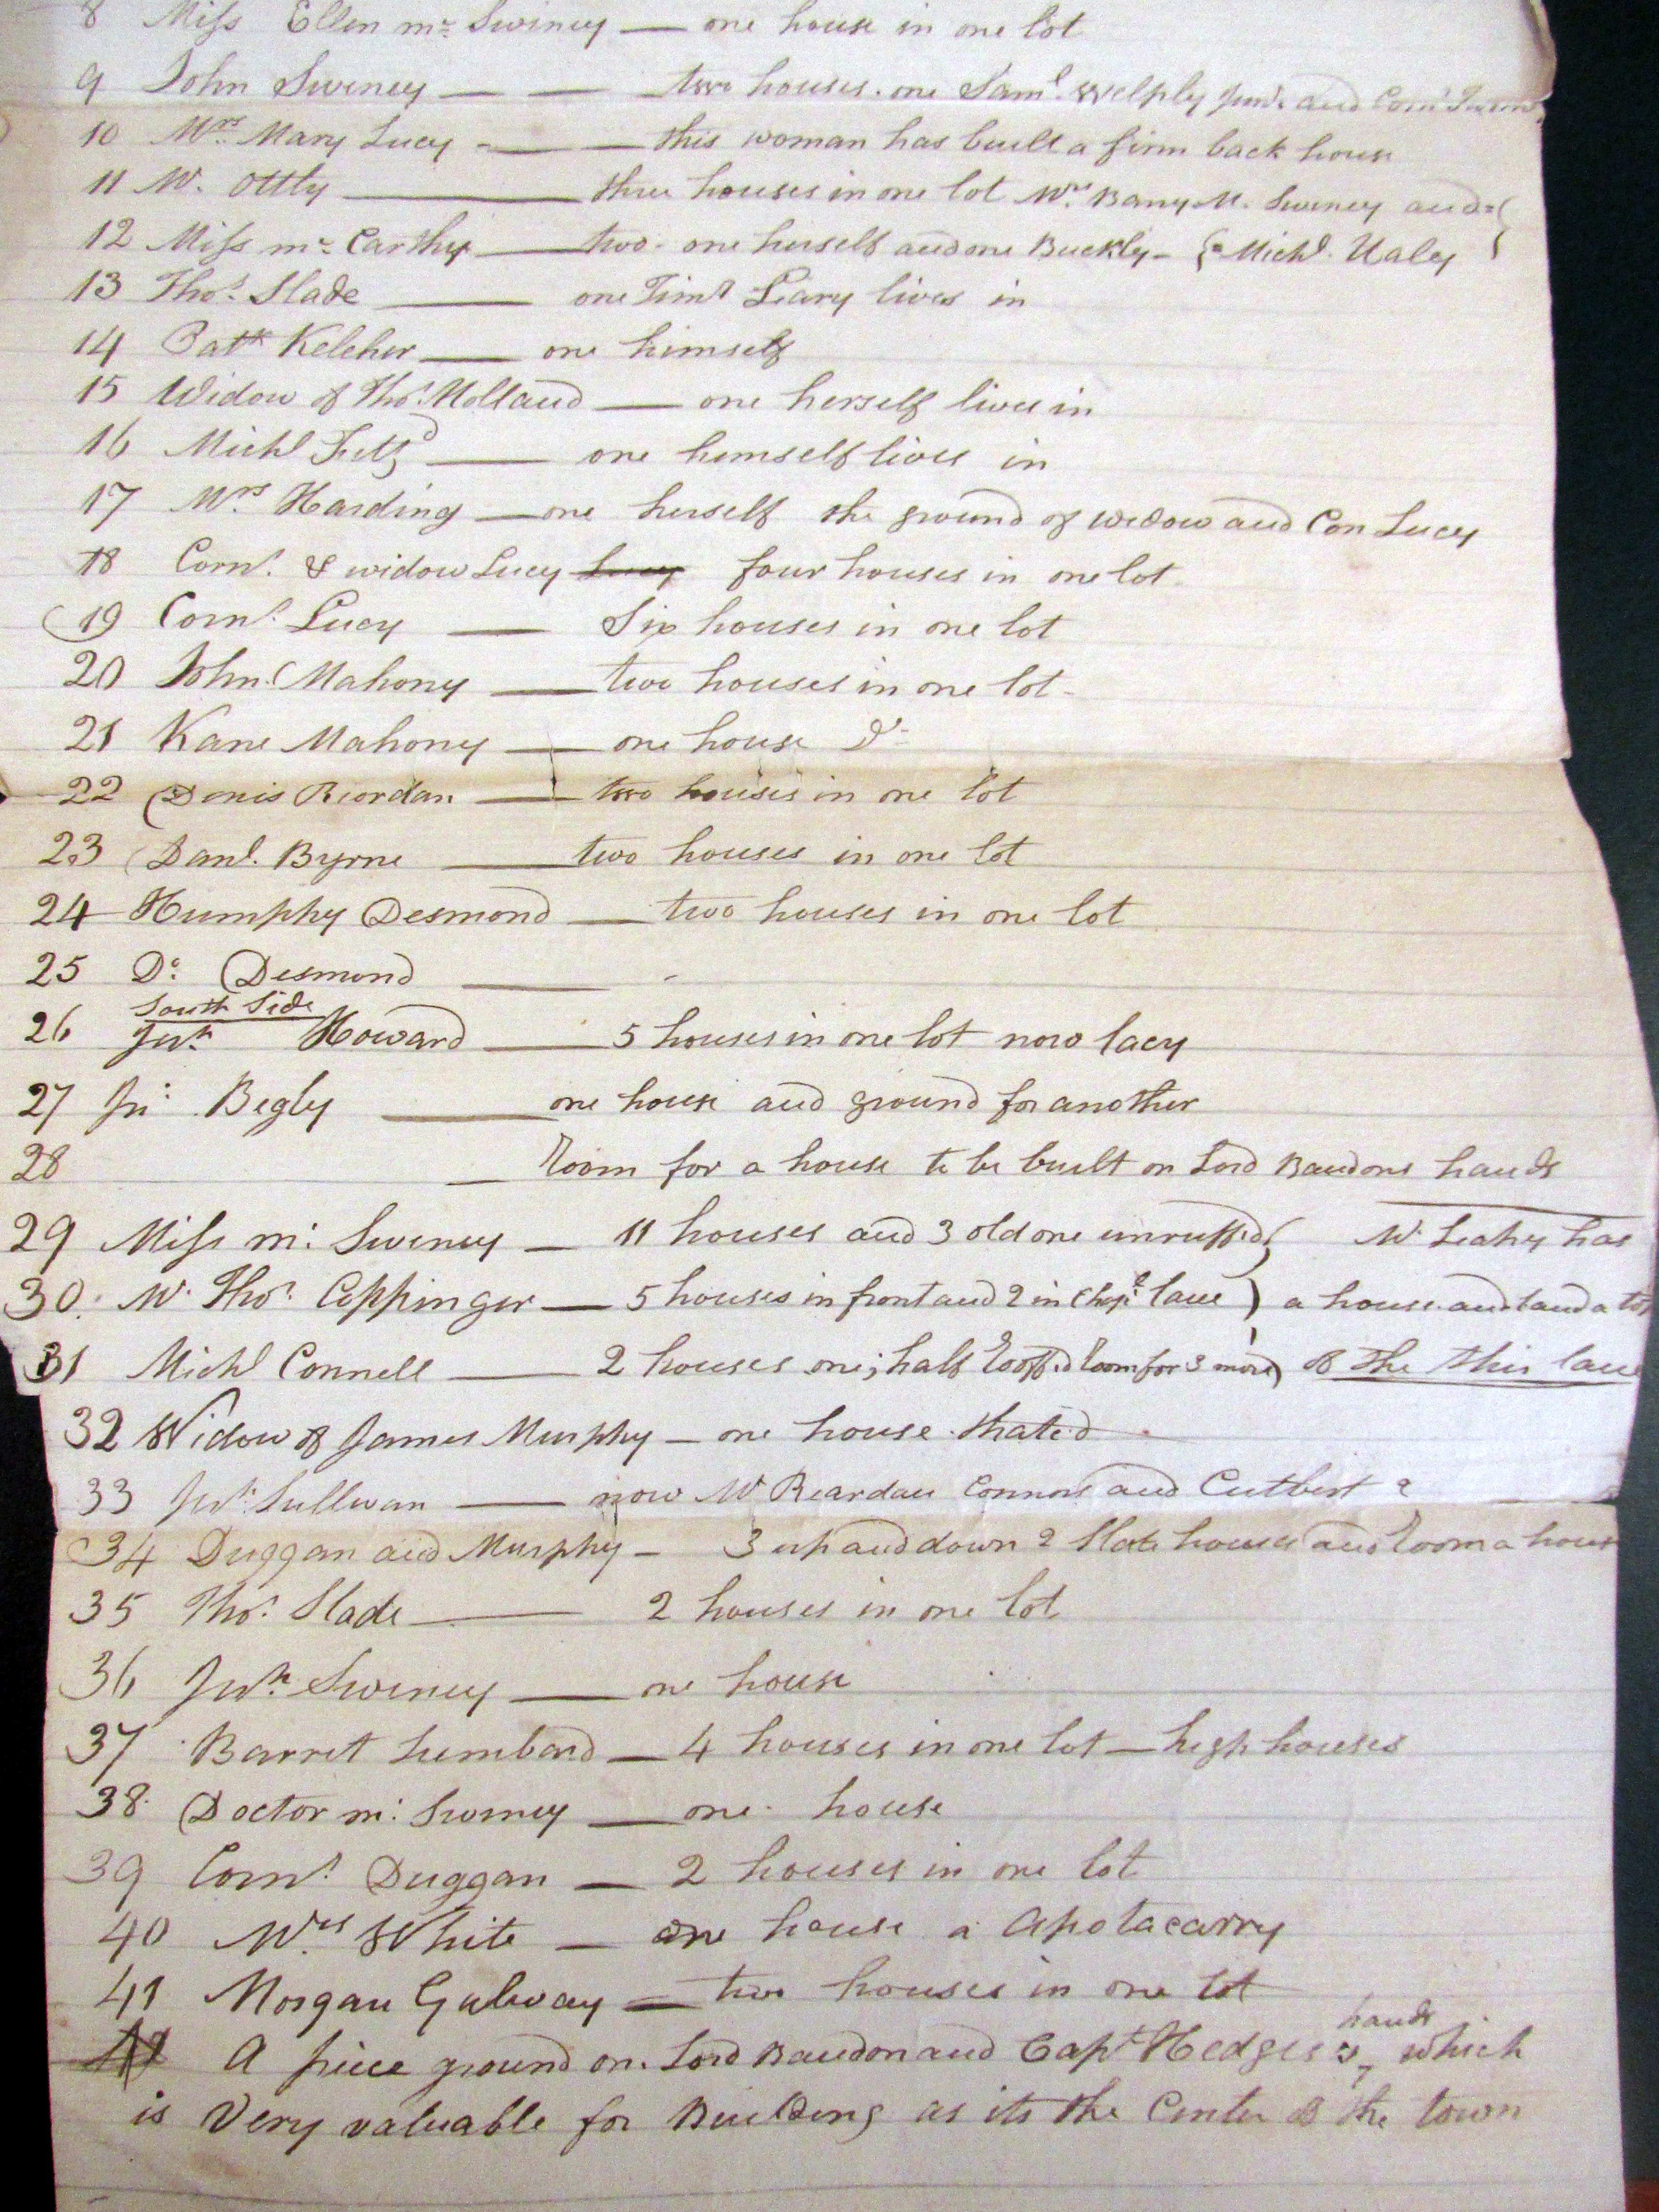 8 Miss Ellen mc Swiney — one house in one lot
9 John Swiney — — two houses. one Saml. Welply Junr. and Corns
10 Mrs. Mary Lucy — — this woman has built a firm back house
11 W. Ottly — three houses in one lot Mrs. Barry M. Swiney and
12 Miss mc Carthy — two - one herself and one Buckly - { Michl. Haly }
13 Thos. Slade — one Timy Leary lives in
14 Patk Keleher — one himself
15 Widow of Thos. Holland — one herself lives in
16 Michl Fitzd — one himself lives in
17 Mrs. Harding — one herself the ground of widow and Con Lucy
18 Corns. & widow Lucy Lucy four houses in one lot
19 Corns. Lucy — Six houses in one lot
20 John Mahony — two houses in one lot -
21 Kane Mahony — one house Do
22 Denis Riordan — two houses in one lot
23 Danl. Byrne — two houses in one lot
24 Humphy Desmond — two houses in one lot
25 Do. Desmond —
South Side
26 Jno. Howard — 5 houses in one lot now lacy
27 Jn. Begly — one house and ground for another
28 — room for a house to be built on Lord Bandons hands
29 Miss mc. Swiney — 11 houses and 3 old one unruffed } Mr Leahy has
30. Mr. Thos. Coppinger — 5 houses in front and 2 in Chapl lane ) a house and land a top
31 Michl Connell — 2 houses one; half rooffed room for 3 more) of the this lane
32 Widow of James Murphy — one house thated
33 Jno. Sullivan — now Mr Reardan Connors and Cutbert 2
34 Duggan and Murphy — 3 up and down 2 Slate houses and room a house
35 Thos. Slade — 2 houses in one lot
36 Jno. Swiney — one house
37 Barret Lumbard — 4 houses in one lot — high houses
38. Doctor mc. Swiney — one house
39 Corns. Duggan — 2 houses in one lot
40 Mrs. White — one house a apotacarry
41 Morgan Galway — two houses in one lot
A piece ground on Lord Bandon and Capt Hedges's hands which
is Very valuable for Building as its the Center of the town